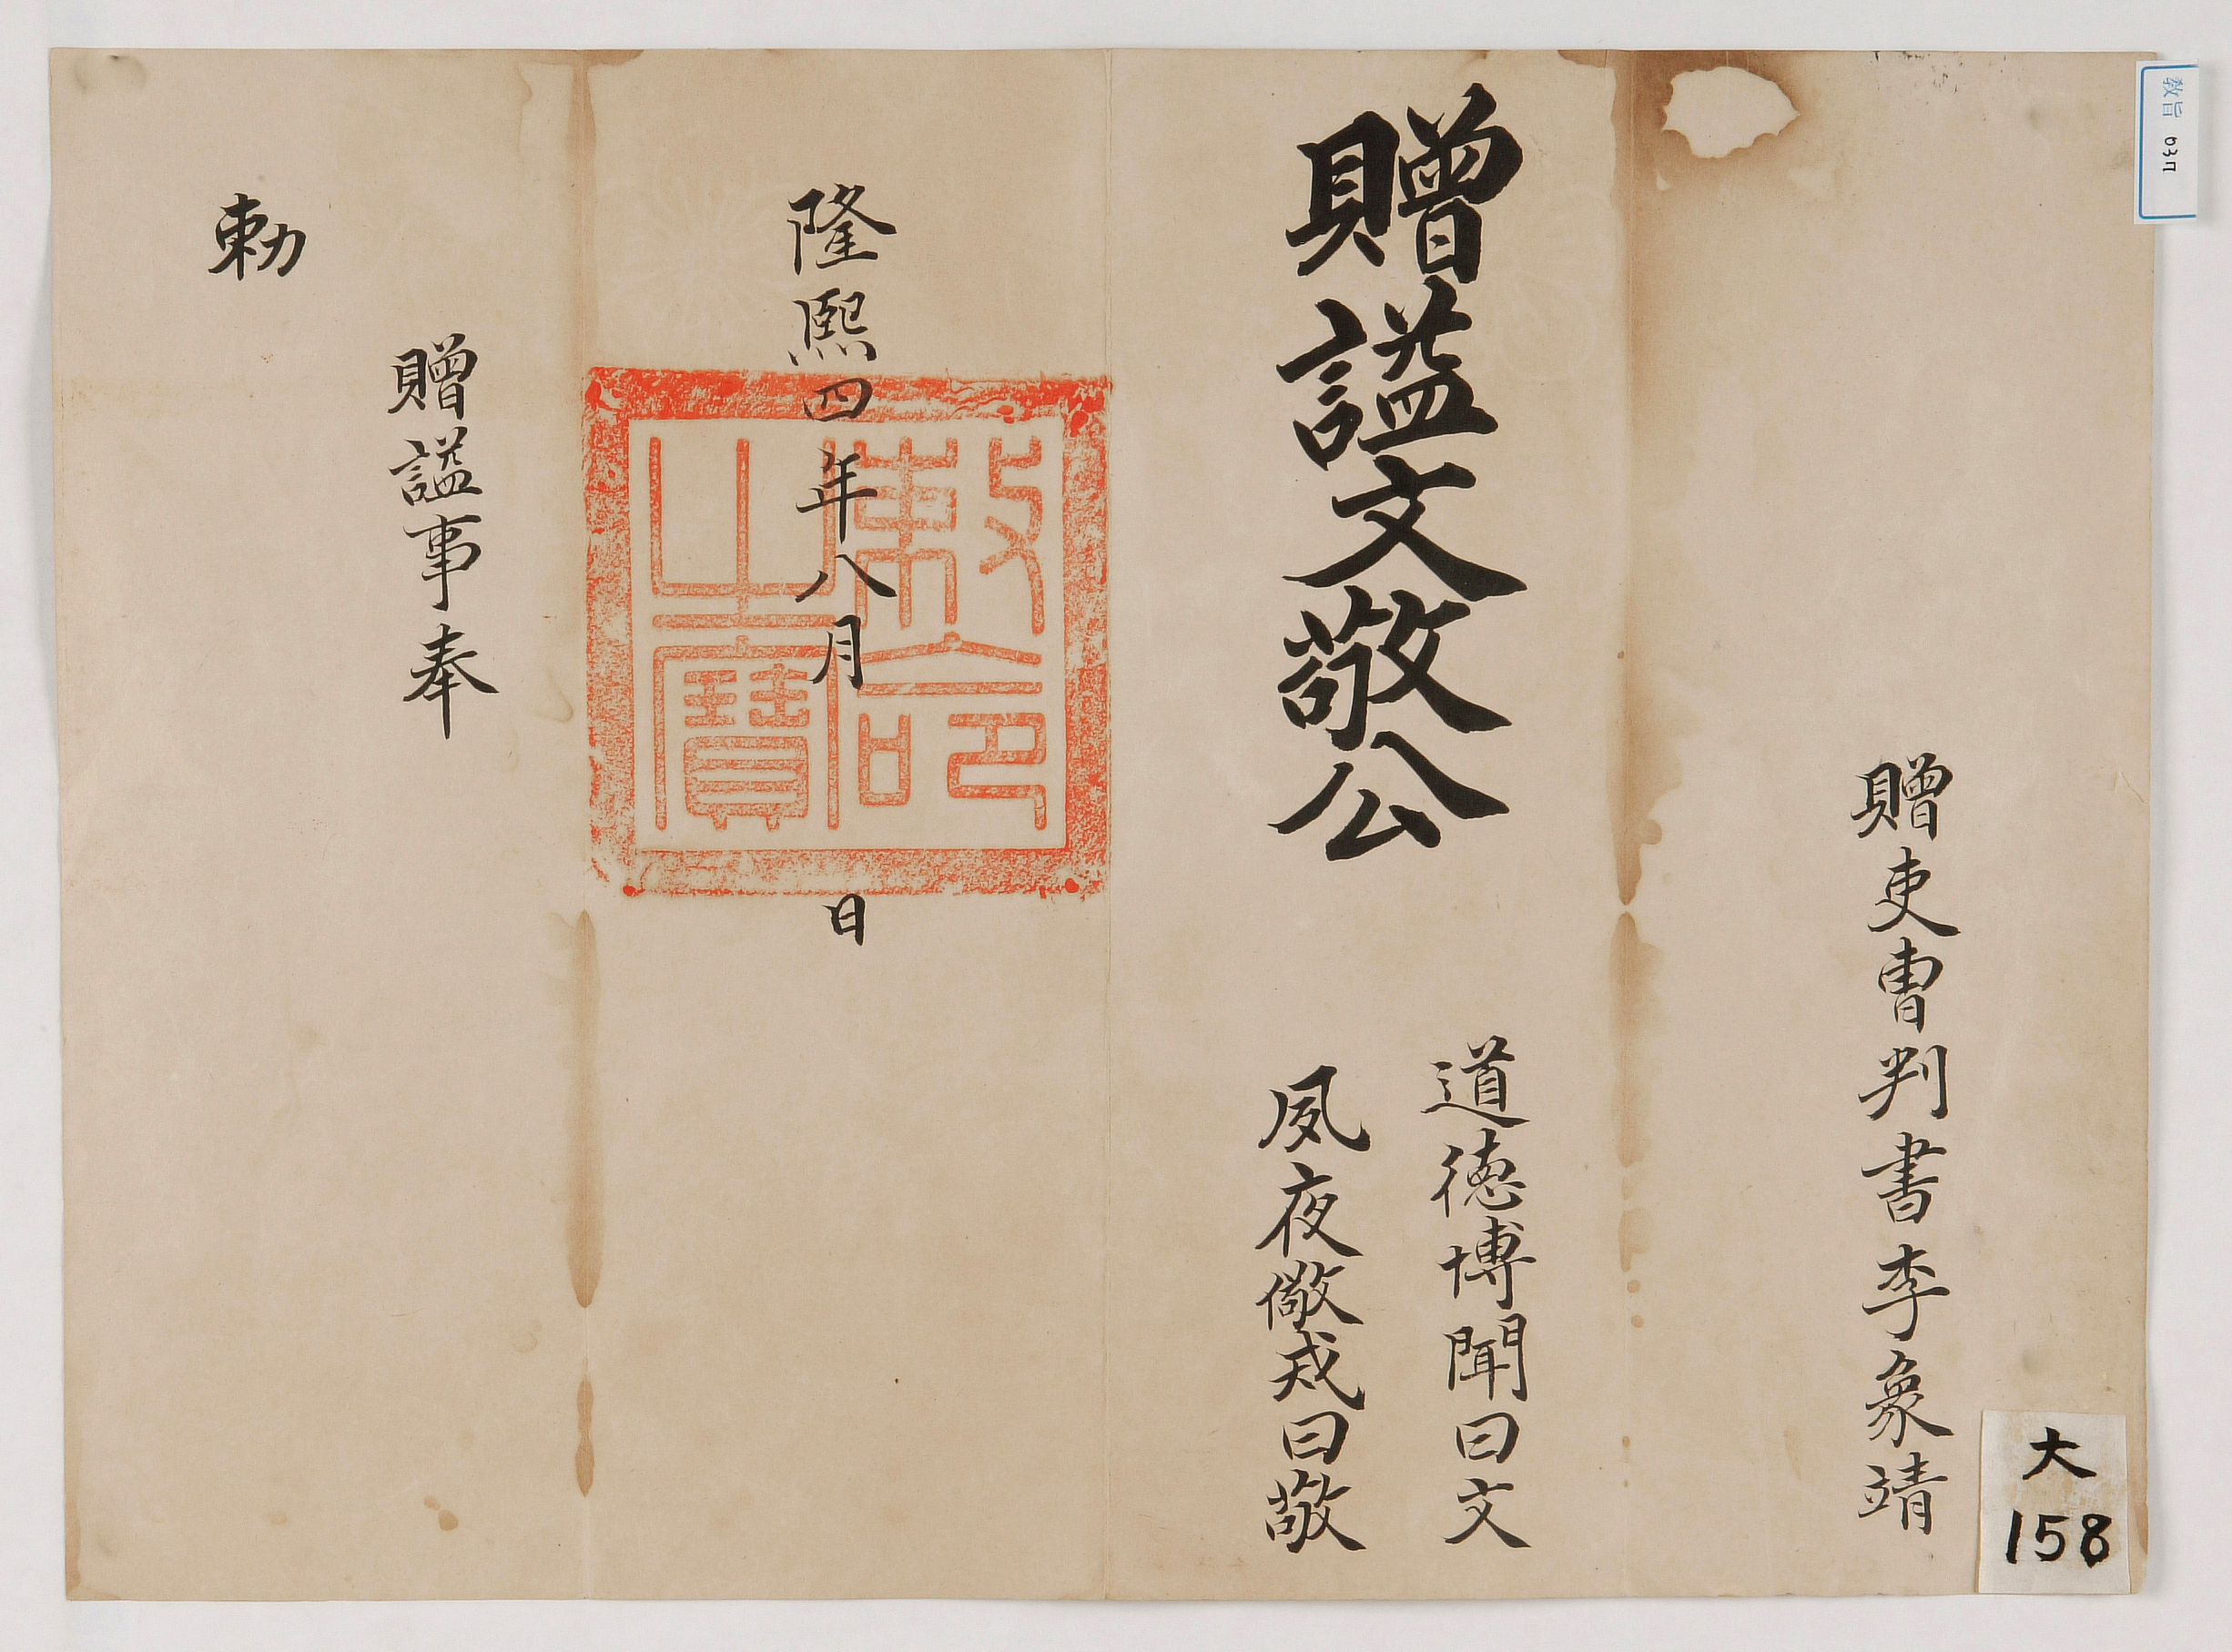 敎旨 037
贈吏曹判書李象靖
大
158
贈謚文敬公
道徳博聞曰文
夙夜儆戒曰敬
隆熙四年八月 日
敕命之寶
贈謚事奉
勅